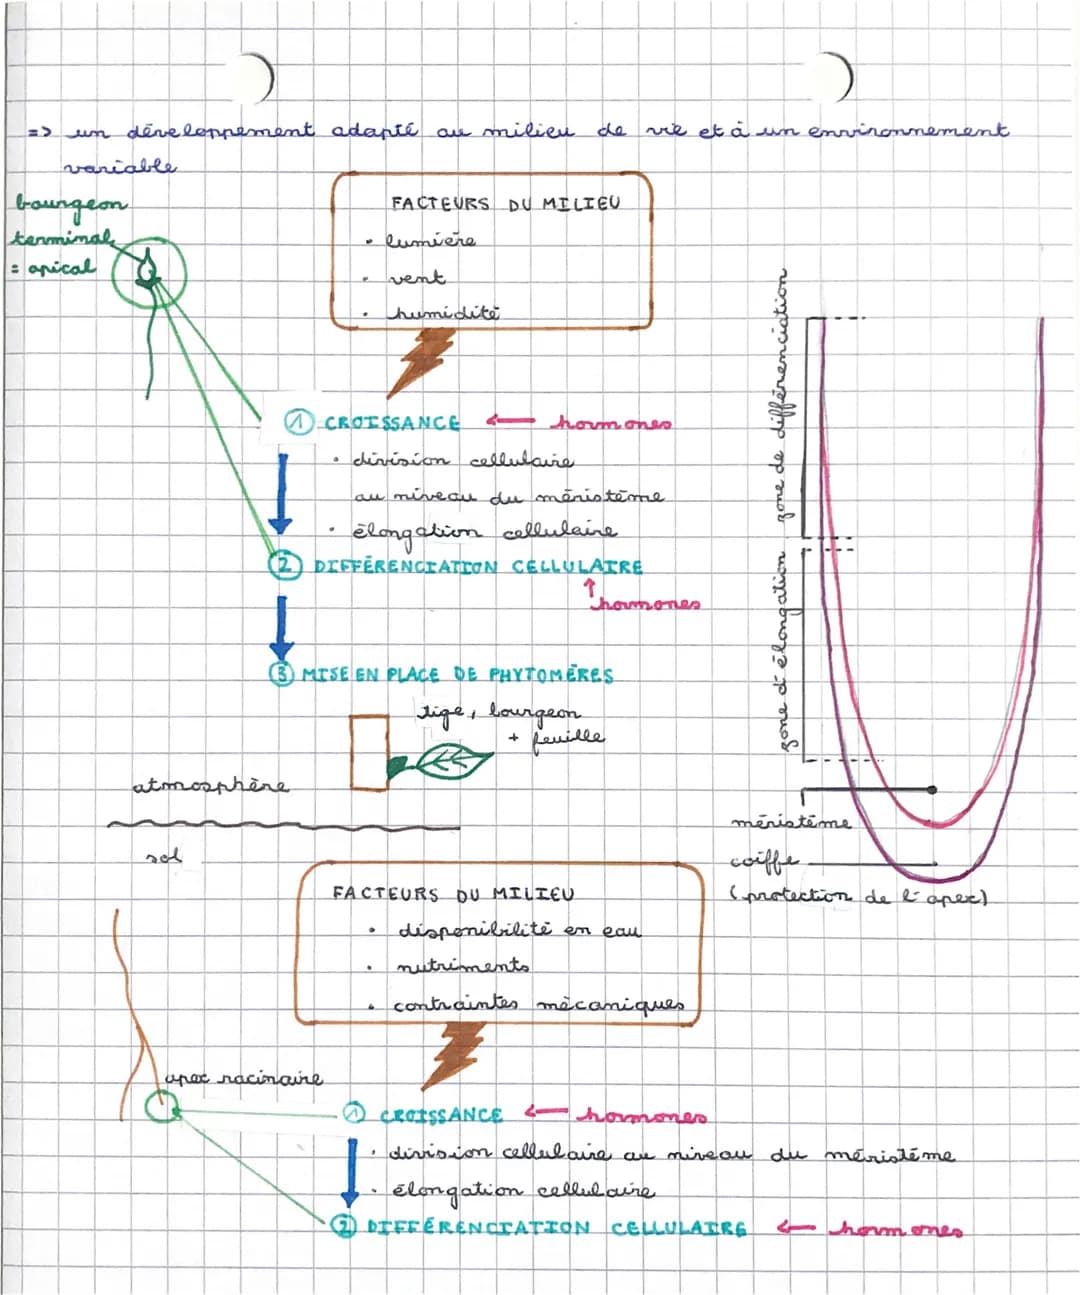 => un développement adapté au milieu de vie et à un environnement
variable
bourgeon
terminal
= apical
FACTEURS DU MILIEU
• lumière
• vent
• humidité
① CROISSANCE ← hormones
• division cellulaire
au niveau du méristème
• élongation cellulaire
② DIFFÉRENCIATION CELLULAIRE
↑ hormones
③ MISE EN PLACE DE PHYTOMÈRES
tige, bourgeon
+ feuille
zone de différenciation
zone d'élongation
méristème
coiffe
(protection de l'apex)
atmosphère
sol
FACTEURS DU MILIEU
• disponibilité en eau
• nutriments
• contraintes mécaniques
apex racinaire
① CROISSANCE ← hormones
• division cellulaire au niveau du méristème
• élongation cellulaire
② DIFFÉRENCIATION CELLULAIRE ← hormones